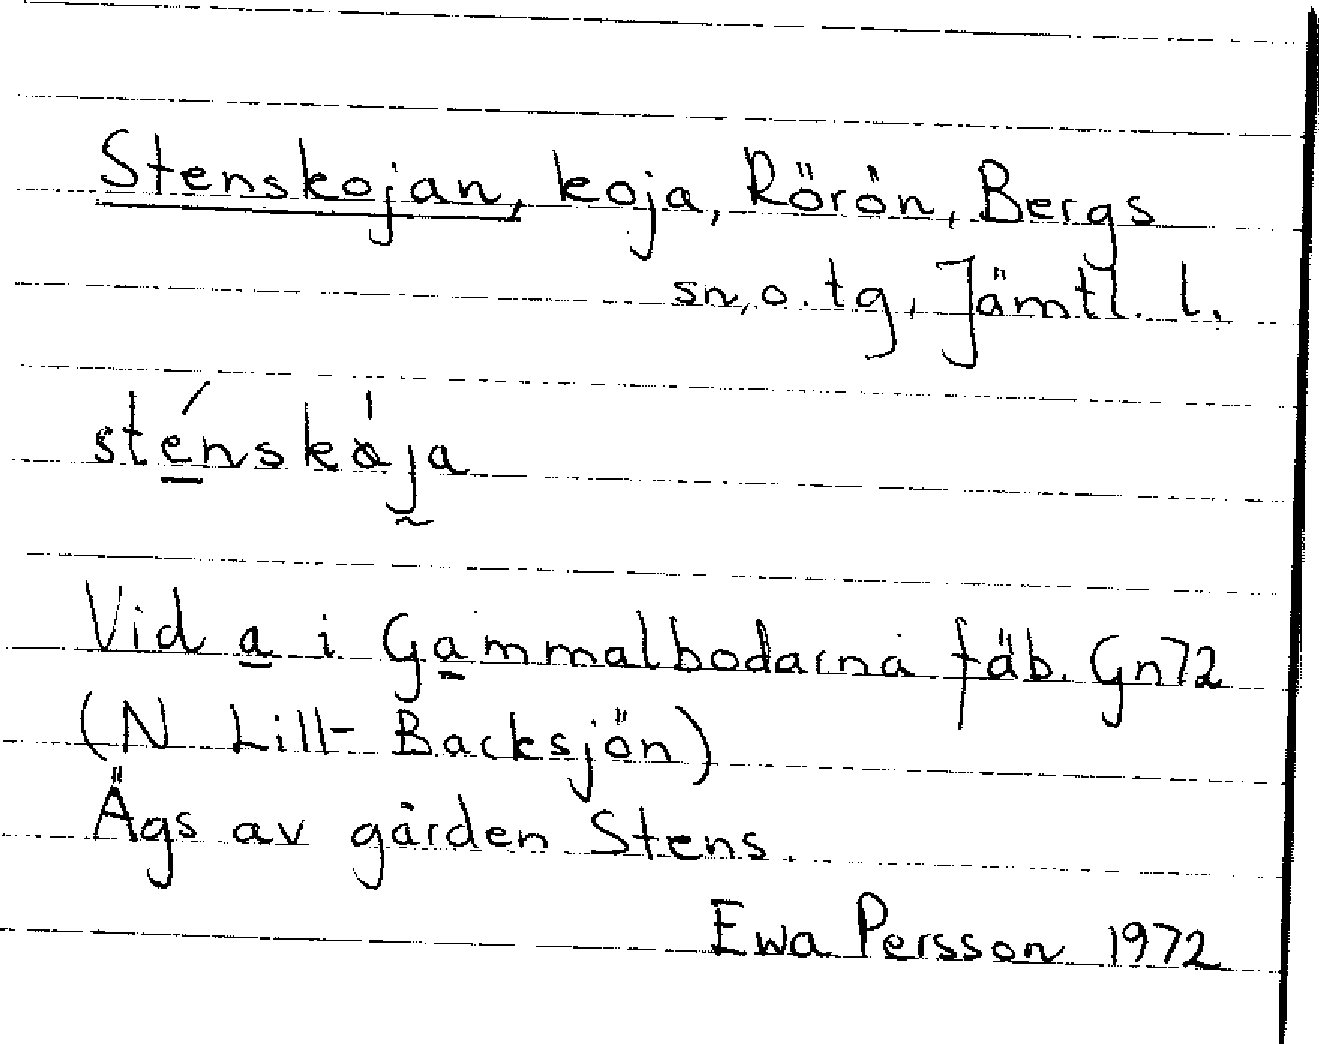 Stenskojan, koja, Rörön, Bergs
sn, o. tg, Jämtl. l.
sténskåja
Vid a i Gammalbodarna fäb. Gn72
(N Lill-Backsjön)
Ägs av gården Stens.
Ewa Persson 1972